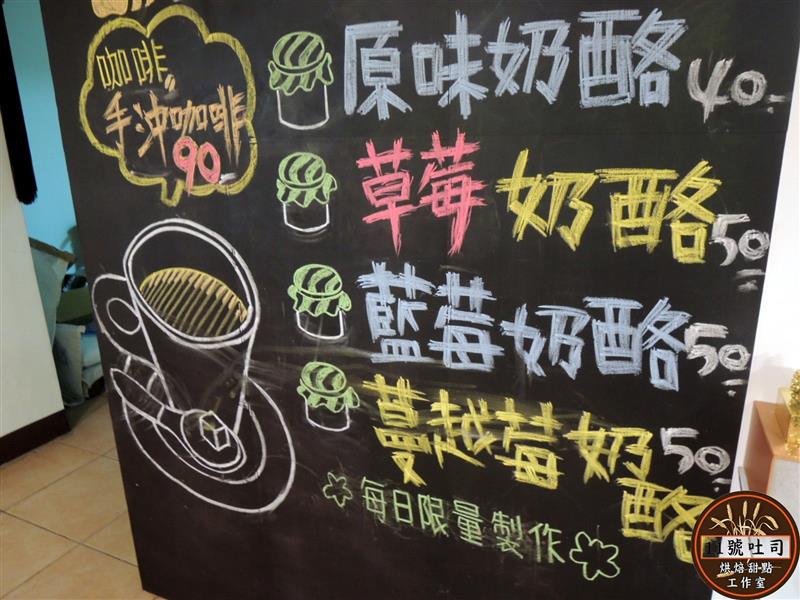 咖啡
手沖咖啡
90.-
原味奶酪 40.-
草莓 奶酪 50.-
藍莓奶酪 50.-
蔓越莓奶酪 50.-
每日限量製作
11號吐司
烘焙甜點
工作室